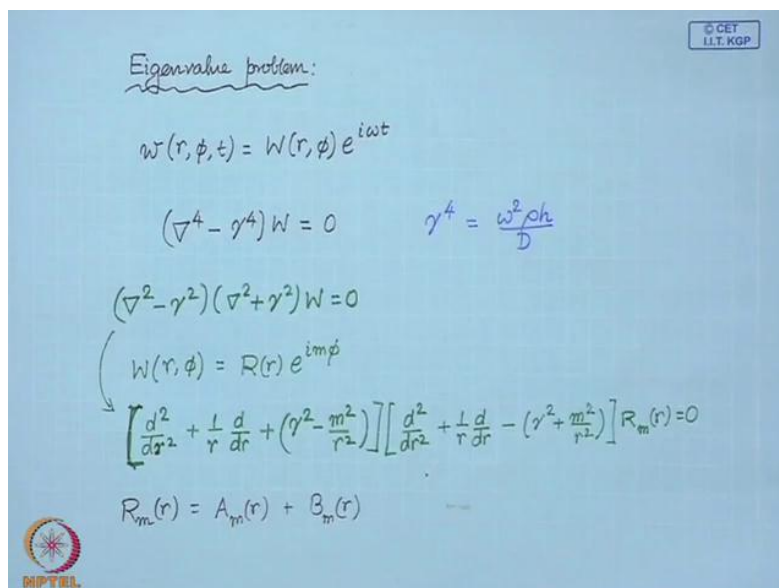 © CET
I.I.T. KGP
Eigenvalue problem:
w(r, φ, t) = W(r, φ) e^{iωt}
(∇⁴ - γ⁴) W = 0 γ⁴ = \frac{ω² ρh}{D}
(∇² - γ²) (∇² + γ²) W = 0
W(r, φ) = R(r) e^{imφ}
[\frac{d²}{dr²} + \frac{1}{r} \frac{d}{dr} + (γ² - \frac{m²}{r²})] [\frac{d²}{dr²} + \frac{1}{r} \frac{d}{dr} - (γ² + \frac{m²}{r²})] R_m(r) = 0
R_m(r) = A_m(r) + B_m(r)
NPTEL